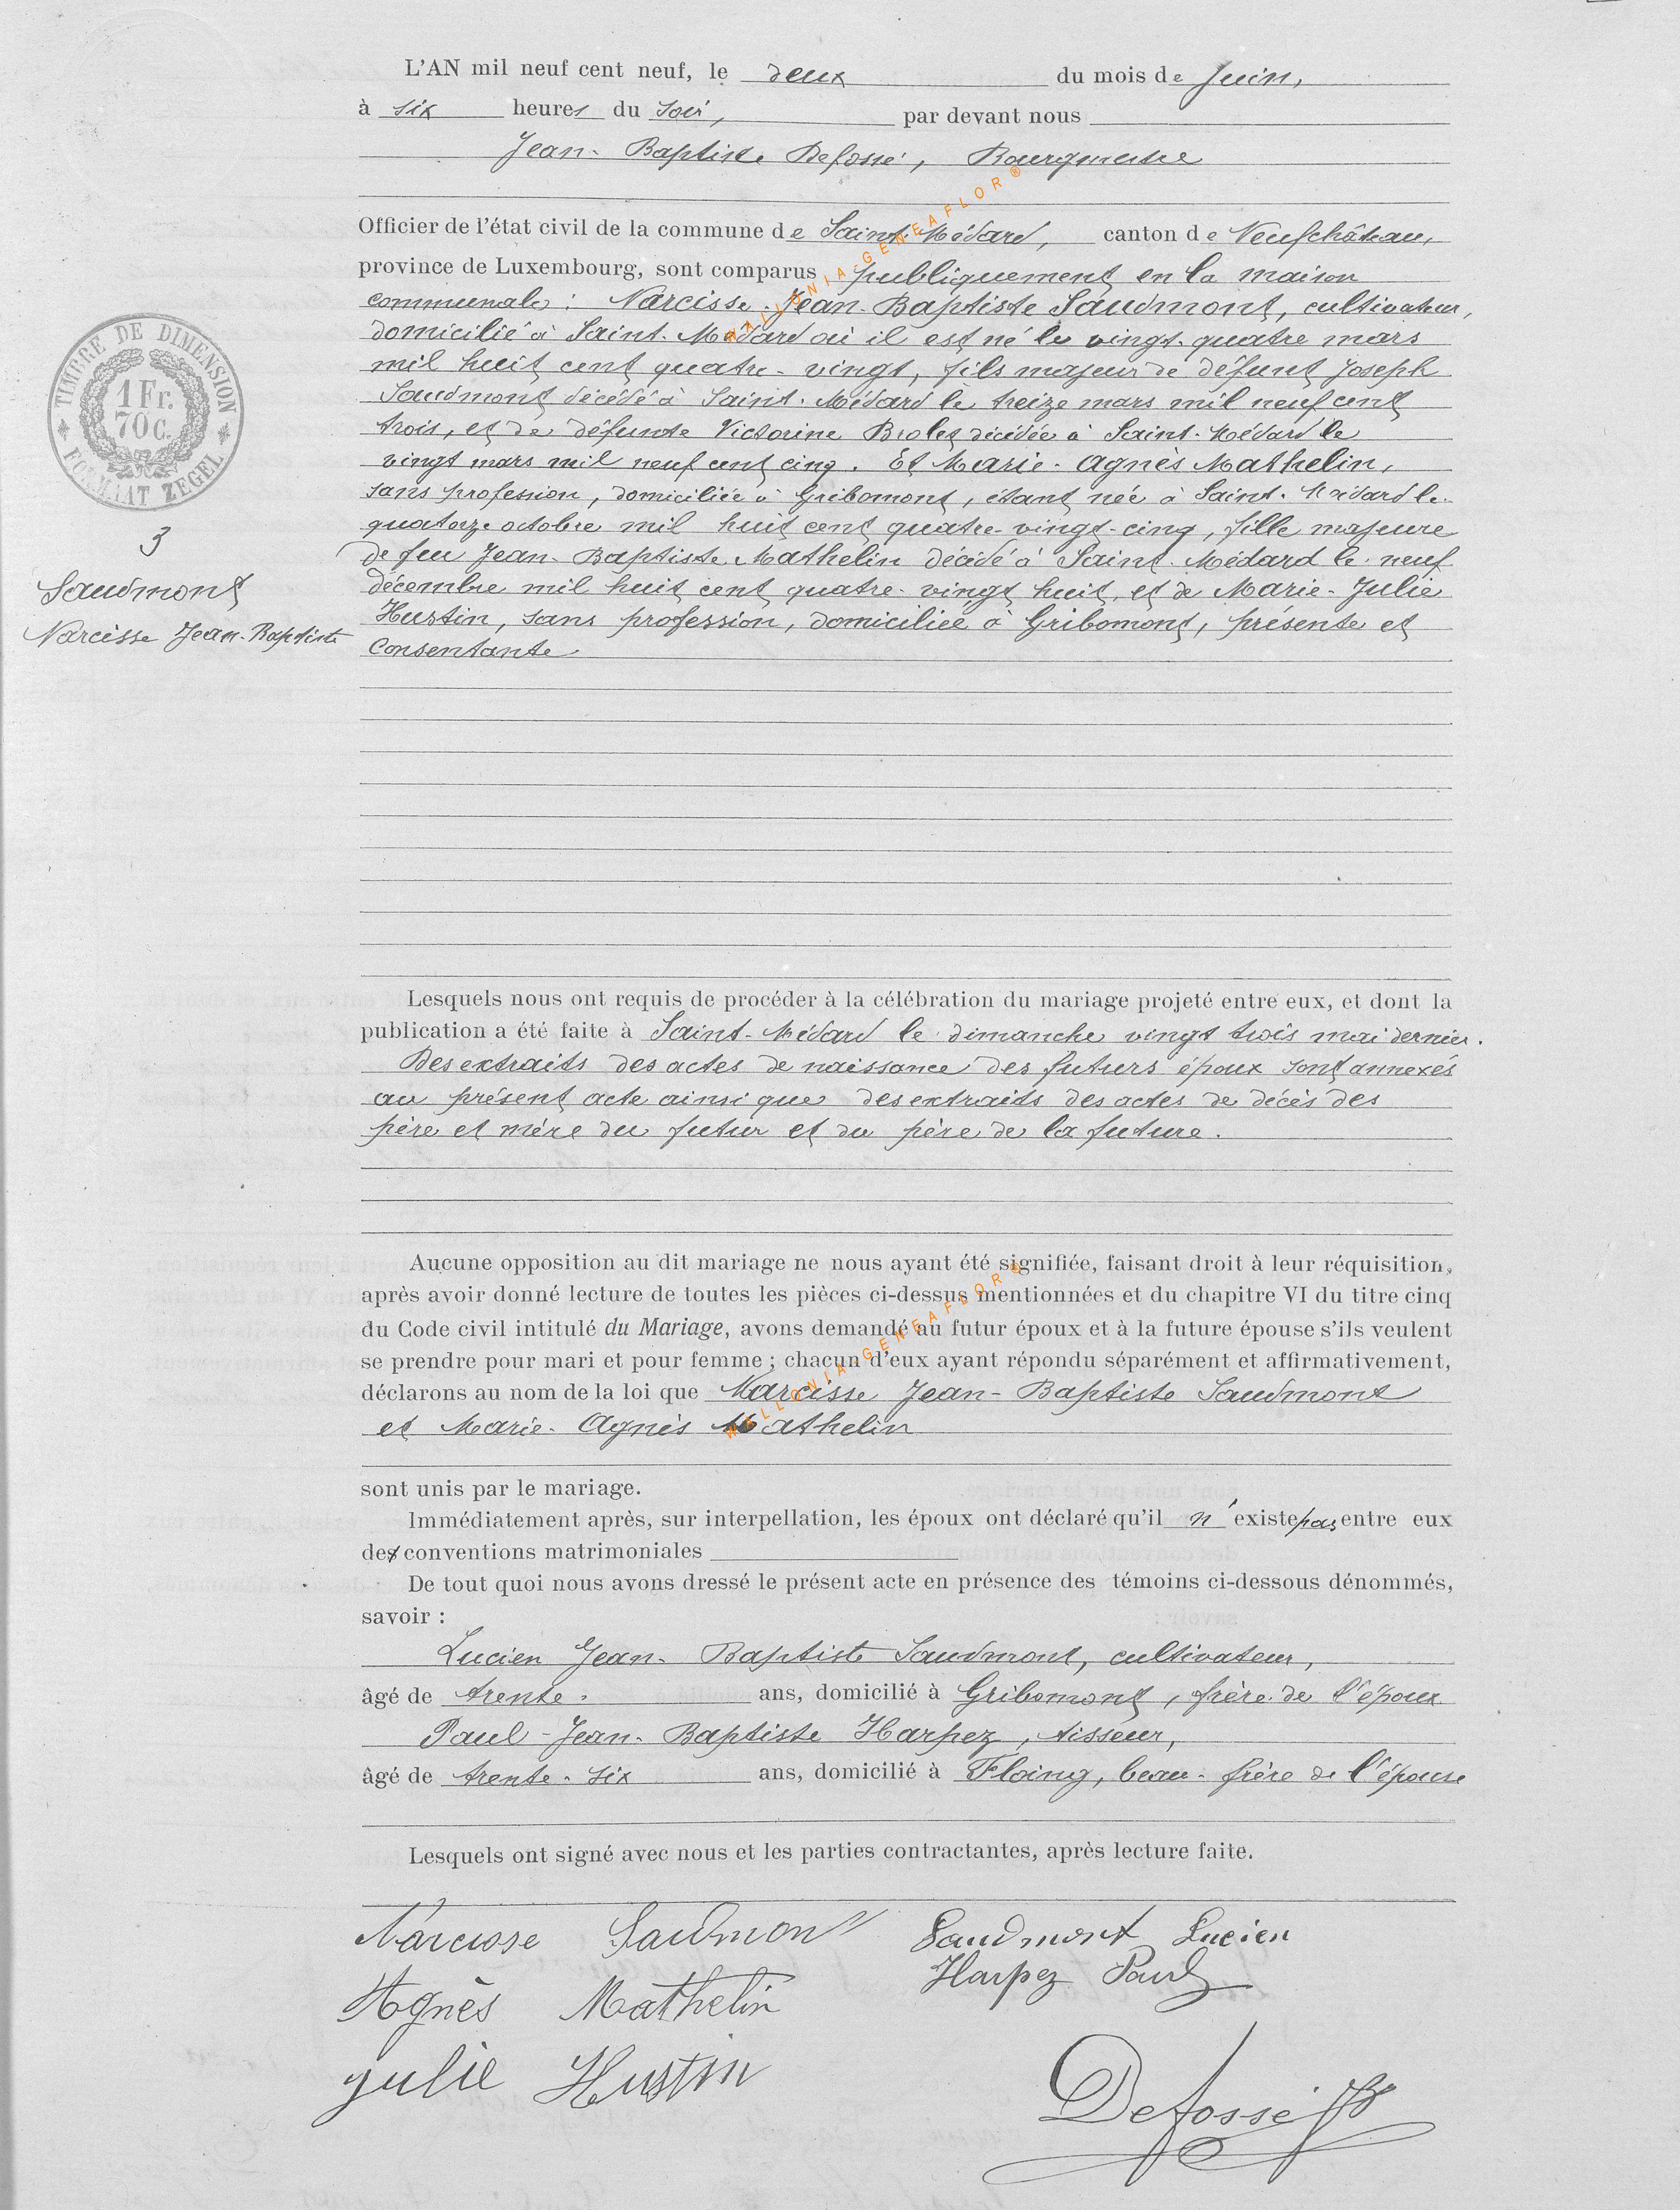 L'AN mil neuf cent neuf, le deux du mois de Juin,
à six heures du soir, par devant nous
Jean-Baptiste Defossé, Bourgmestre
Officier de l'état civil de la commune de Saint-Médard, canton de Neufchâteau,
province de Luxembourg, sont comparus publiquement en la maison
communale : Narcisse-Jean-Baptiste Saudmont, cultivateur,
domicilié à Saint-Médard où il est né le vingt-quatre mars
mil huit cent quatre-vingt, fils majeur de défunt Joseph
Saudmont décédé à Saint-Médard le treize mars mil neuf cent
trois, et de défunte Victorine Brolet décédée à Saint-Médard le
vingt mars mil neuf cent cinq. Et Marie-Agnès Mathelin,
sans profession, domiciliée à Gribomont, étant née à Saint-Médard le
quatorze octobre mil huit cent quatre-vingt-cinq, fille majeure
de feu Jean-Baptiste Mathelin décédé à Saint-Médard le neuf
décembre mil huit cent quatre-vingt huit, et de Marie-Julie
Hustin, sans profession, domiciliée à Gribomont, présente et
consentante
TIMBRE DE DIMENSION
1 Fr.
70 c.
FORMAAT ZEGEL
3
Saudmont
Narcisse Jean-Baptiste
Lesquels nous ont requis de procéder à la célébration du mariage projeté entre eux, et dont la
publication a été faite à Saint-Médard le dimanche vingt trois mai dernier.
Des extraits des actes de naissance des futurs époux sont annexés
au présent acte ainsi que des extraits des actes de décès des
père et mère du futur et du père de la future.
Aucune opposition au dit mariage ne nous ayant été signifiée, faisant droit à leur réquisition,
après avoir donné lecture de toutes les pièces ci-dessus mentionnées et du chapitre VI du titre cinq
du Code civil intitulé du Mariage, avons demandé au futur époux et à la future épouse s'ils veulent
se prendre pour mari et pour femme ; chacun d'eux ayant répondu séparément et affirmativement,
déclarons au nom de la loi que Narcisse Jean-Baptiste Saudmont
et Marie-Agnès Mathelin
sont unis par le mariage.
Immédiatement après, sur interpellation, les époux ont déclaré qu'il n'existe pas entre eux
de conventions matrimoniales
De tout quoi nous avons dressé le présent acte en présence des témoins ci-dessous dénommés,
savoir :
Lucien Jean-Baptiste Saudmont, cultivateur,
âgé de trente ans, domicilié à Gribomont, frère de l'époux
Paul-Jean-Baptiste Harpez, tisseur,
âgé de trente-six ans, domicilié à Floing, beau-frère de l'épouse
Lesquels ont signé avec nous et les parties contractantes, après lecture faite.
Narcisse Saudmont Saudmont Lucien
Harpez Paul
Agnès Mathelin
Julie Hustin
Defossé JB
WALLONIA-GENEAFLOR®
WALLONIA-GENEAFLOR®